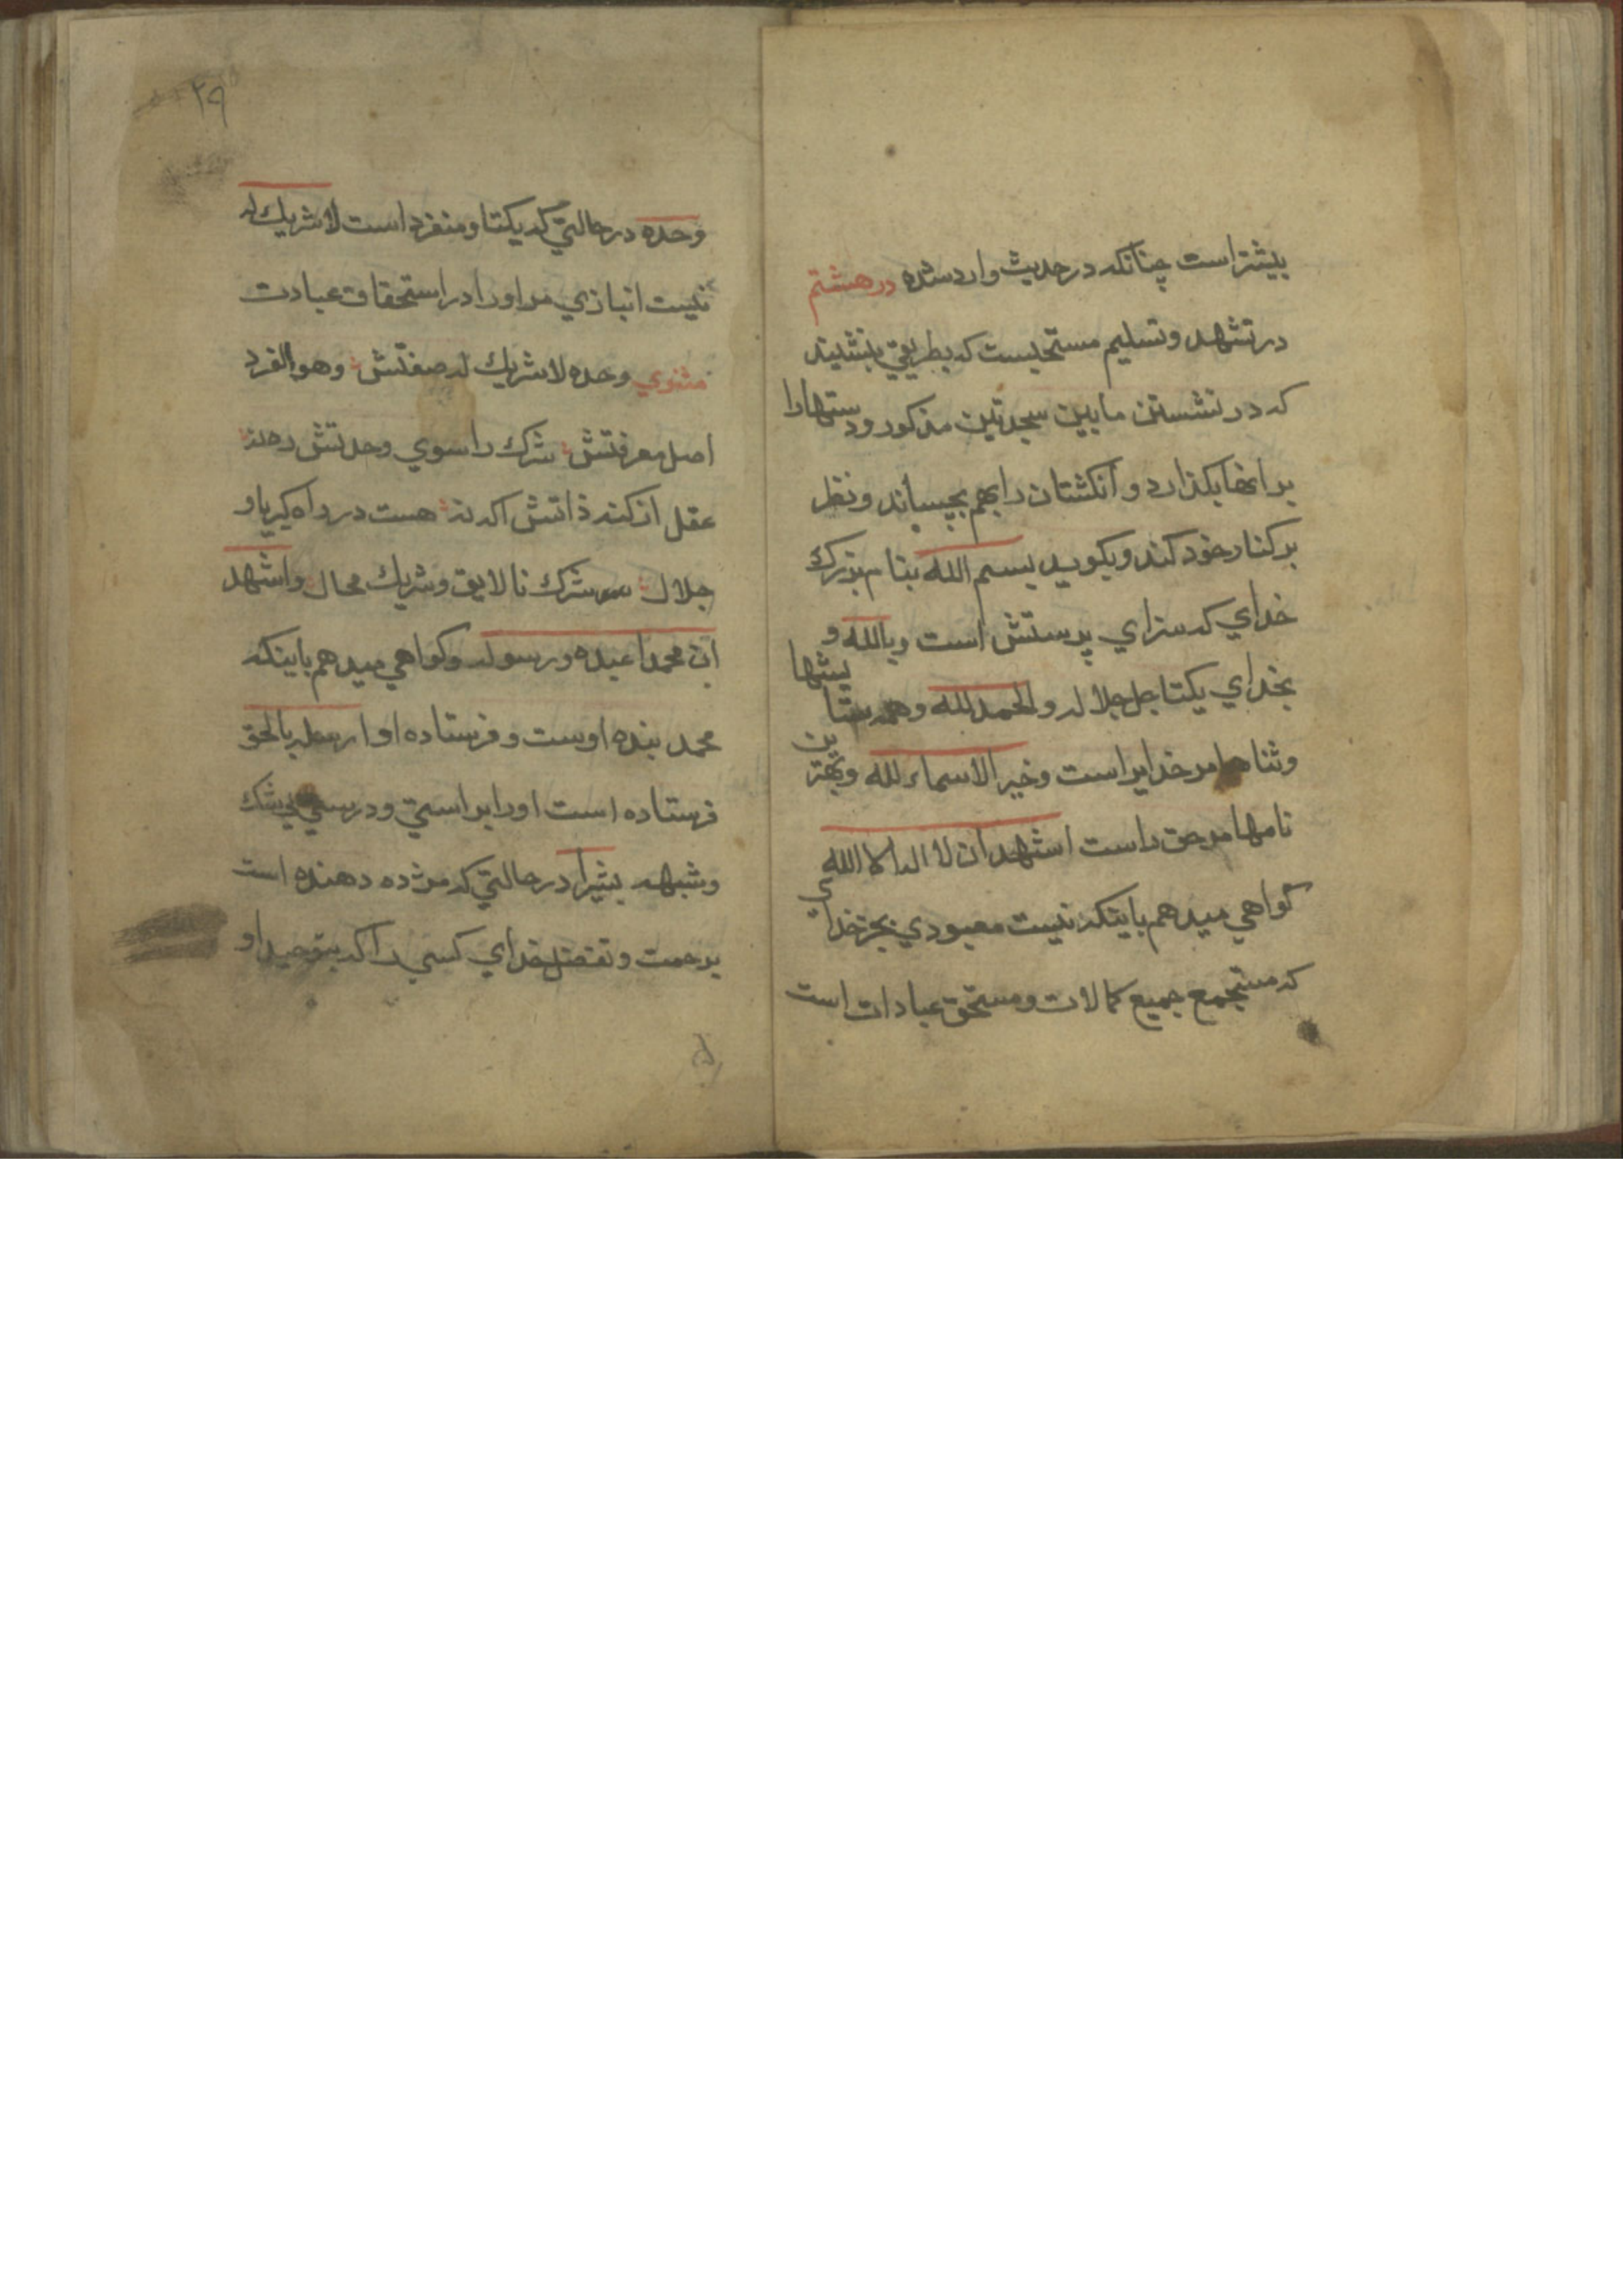 بیشتر است چنانکه در حدیث وارد شده در هشتم
در تشهد و تسلیم مستحبست که بطریقی بنشیند
که در نشستن مابین سجدتین مذکور و دستها را
بر انها بکذارد و انکشتان را بهم بچسباند و نظر
بر کنار خود کند و بکوید بسم الله بنام بزرك
خدای که سزای پرستش است و بالله و
بخدای یکتا جل جلاله و الحمد لله و همه ستایشها
و ثناها مر خدایراست و خیر الاسماء لله و بهترین
نامها مر حق راست اشهد ان لا اله الا الله
کواهی میدهم باینکه نیست معبودی بجز خدای
که مستجمع جمیع کمالات و مستحق عبادات است
۲۹
وحده در حالتی که یکتا و منفرد است لا شریك له
نیست انبازی مر اورا در استحقاق عبادت
مثنوی وحده لا شریك له صفتش وهو الفرد
اصل معرفتش شرك را سوی وحدتش ره نه
عقل از کنه ذاتش اکه نه هست در راه کبریا و
جلال شرك نالایق و شریك محال و اشهد
ان محمدا عبده و رسوله و کواهی میدهم باینکه
محمد بنده اوست و فرستاده او ارسله بالحق
فرستاده است اورا براستی و درستی بی شك
و شبهه بشیرا در حالتی که مژده دهنده است
برحمت و تفضل خدای کسی را که بتوحید او